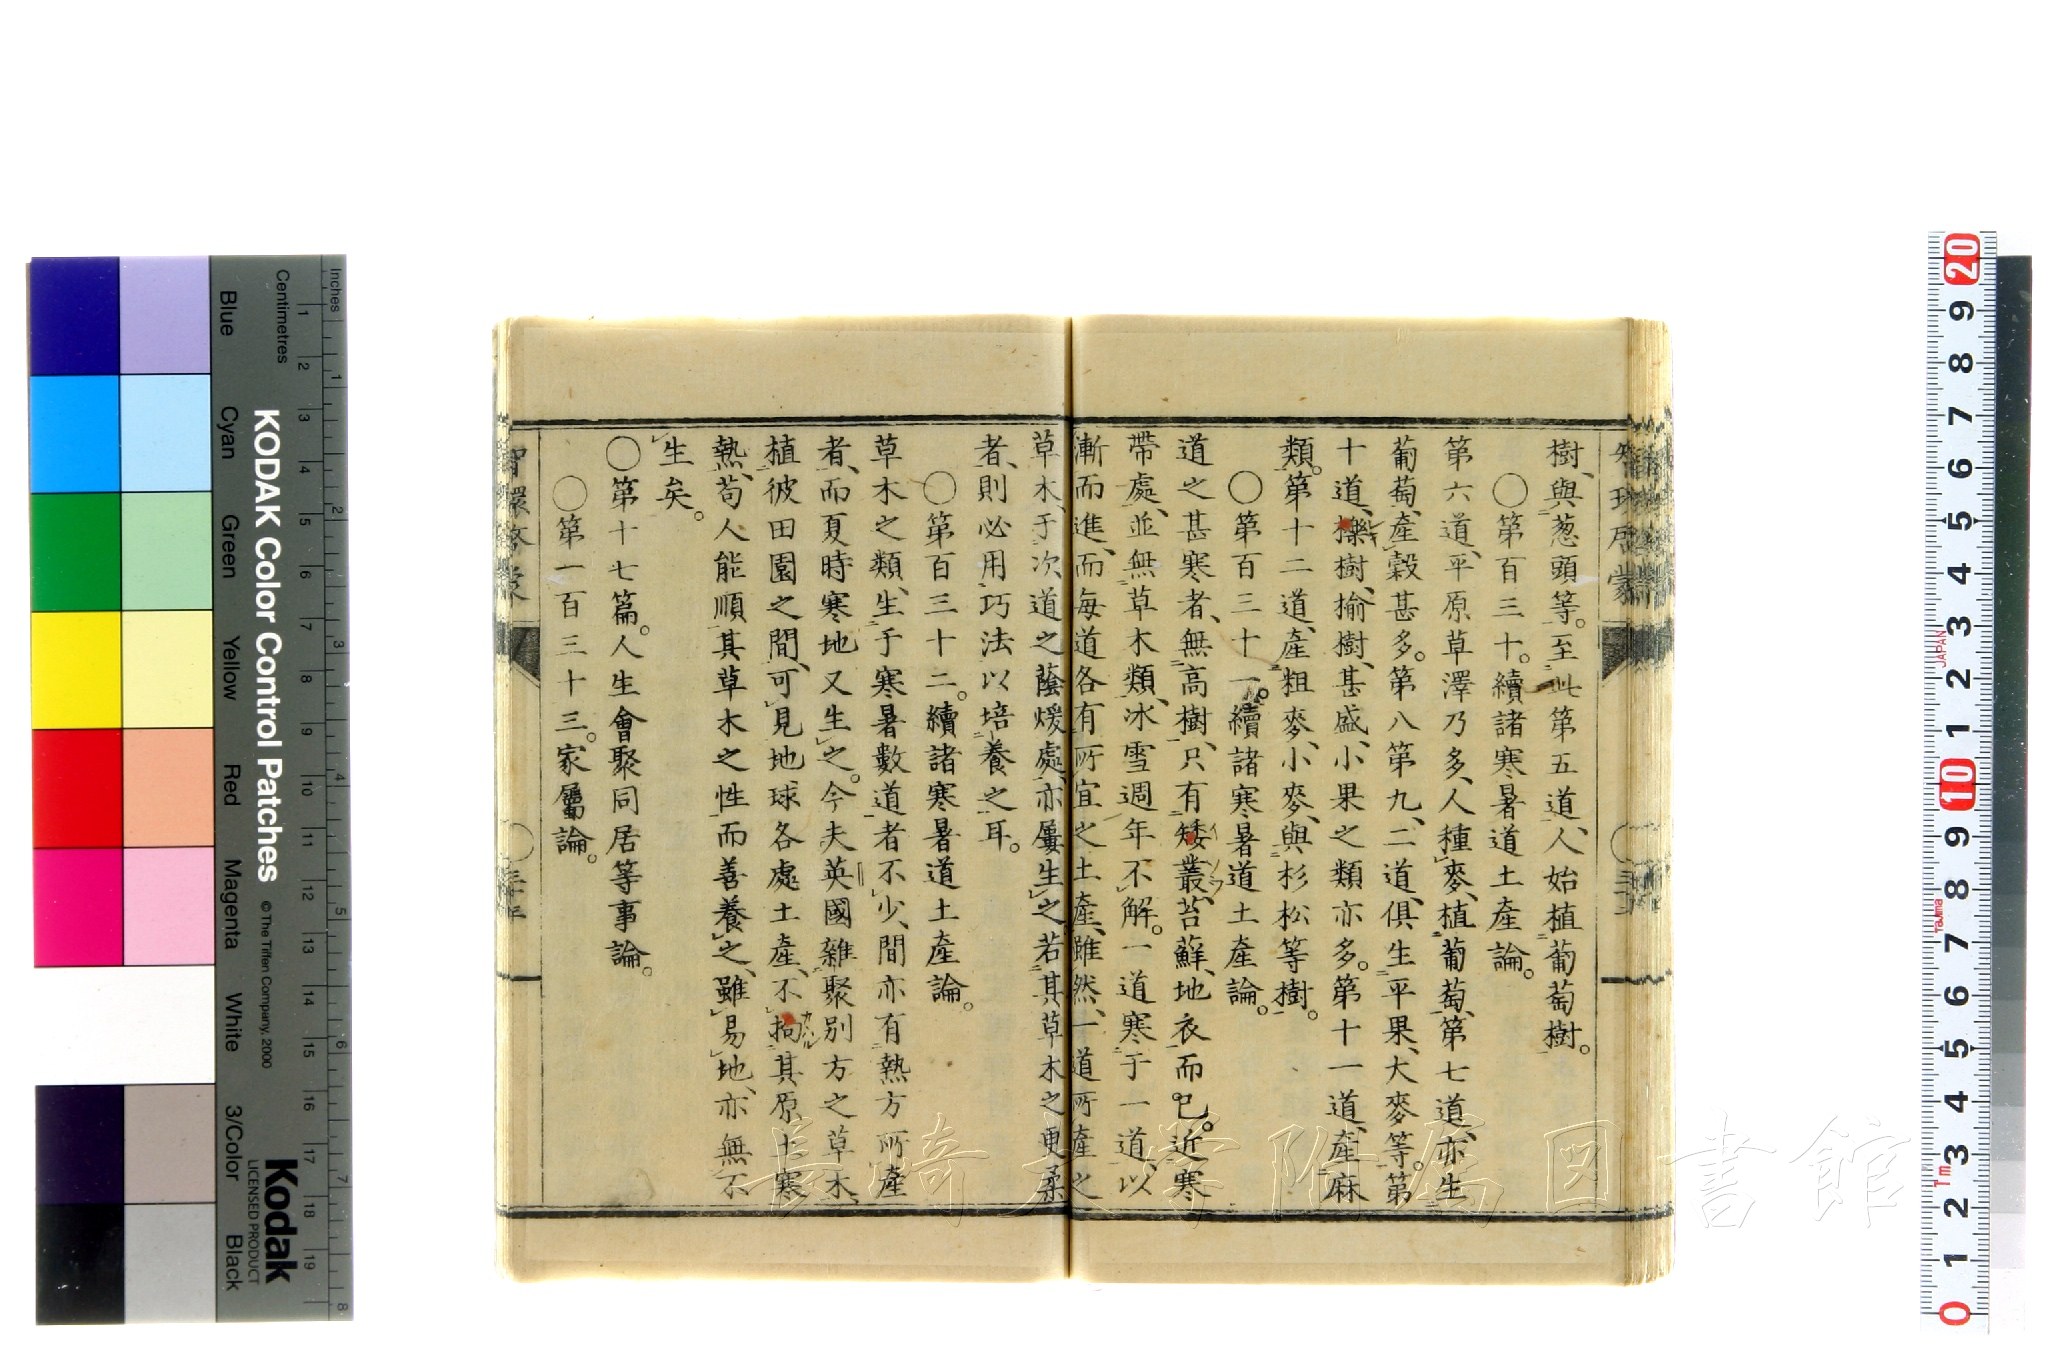 樹、與葱頭等。至此第五道、人始植葡萄樹。
〇第百三十。續諸寒暑道土產論。
第六道、平原草澤乃多、人種麥、植葡萄、第七道、亦生
葡萄、產穀甚多。第八第九、二道、俱生平果、大麥等。第
十道、櫟樹、榆樹、甚盛、小果之類亦多。第十一道、產麻
類。第十二道、產粗麥、小麥、與杉松等樹。
〇第百三十一。續諸寒暑道土產論。
道之甚寒者、無高樹、只有矮叢、苔蘚、地衣而已。近寒
帶處、並無草木類、冰雪週年不解。一道寒于一道、以
漸而進、而每道各有所宜之土產、雖然、一道所產之
草木、于次道之蔭煖處、亦屢生之、若其草木之更柔
者、則必用巧法以培養之耳。
〇第百三十二。續諸寒暑道土產論。
草木之類、生于寒暑數道者不少、間亦有熱方所產
者、而夏時寒地又生之。今夫英國雜聚別方之草木、
植彼田園之間、可見地球各處土產、不拘其原土寒
熱、苟人能順其草木之性而善養之、雖易地、亦無不
生矣。
〇第十七篇。人生會聚同居等事論。
〇第一百三十三。家屬論。
智環啓蒙
KODAK Color Control Patches
© The Tiffen Company, 2000
Kodak
LICENSED PRODUCT
Inches
Centimetres
Blue
Cyan
Green
Yellow
Red
Magenta
White
3/Color
Black
長崎大学附属図書館
JAPAN
Tajima